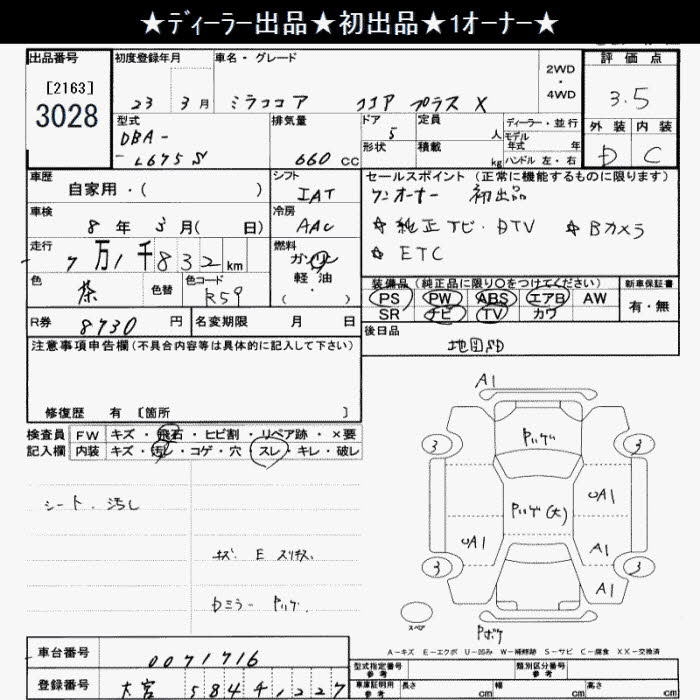 ★ディーラー出品★初出品★1オーナー★
出品番号
[2163]
3028
初度登録年月
23 3月
車名・グレード
ミラココア ココア プラス X
2WD
・
4WD
評価点
3.5
外装 内装
D C
型式
DBA-
L675S
排気量
660 cc
ドア
5
形状
定員
人
積載
kg
ディーラー・並行
モデル
年式 年
ハンドル 左・右
車歴
自家用・( )
シフト
IAT
車検
8年 3月( 日)
冷房
AAC
走行
7万1千832km
燃料
ガソリン
軽油
・
( )
色
茶
色替
色コード
R59
R券
8730円
名変期限 月 日
セールスポイント (正常に機能するものに限ります)
ワンオーナー 初出品
☆ 純正ナビ・DTV ☆ Bカメラ
☆ ETC
装備品 (純正品に限り○をつけてください)
PS PW ABS エアB AW
SR ナビ TV カワ
新車保証書
有・無
後日品
地図SD
注意事項申告欄(不具合内容等は具体的に記入して下さい)
修復歴 有 [箇所 ]
検査員 FW キズ・飛石・ヒビ割・リペア跡・×要
記入欄 内装 キズ・汚レ・コゲ・穴 スレ・キレ・破レ
シート、汚し
キズ E スリキズ
Dミラー Pハゲ
A1
Pハゲ
3 3
Pハゲ(大)
UA1
UA1
A1
3 3
A1
スペア
Pボケ
A−キズ E−エクボ U−凹み W−補修跡 S−サビ C−腐食 XX−交換済
車台番号
0071716
登録番号
大宮 584チ1227
型式指定番号
参考
類別区分番号
参考
車庫証明用
参考
長さ cm 幅 cm 高さ cm